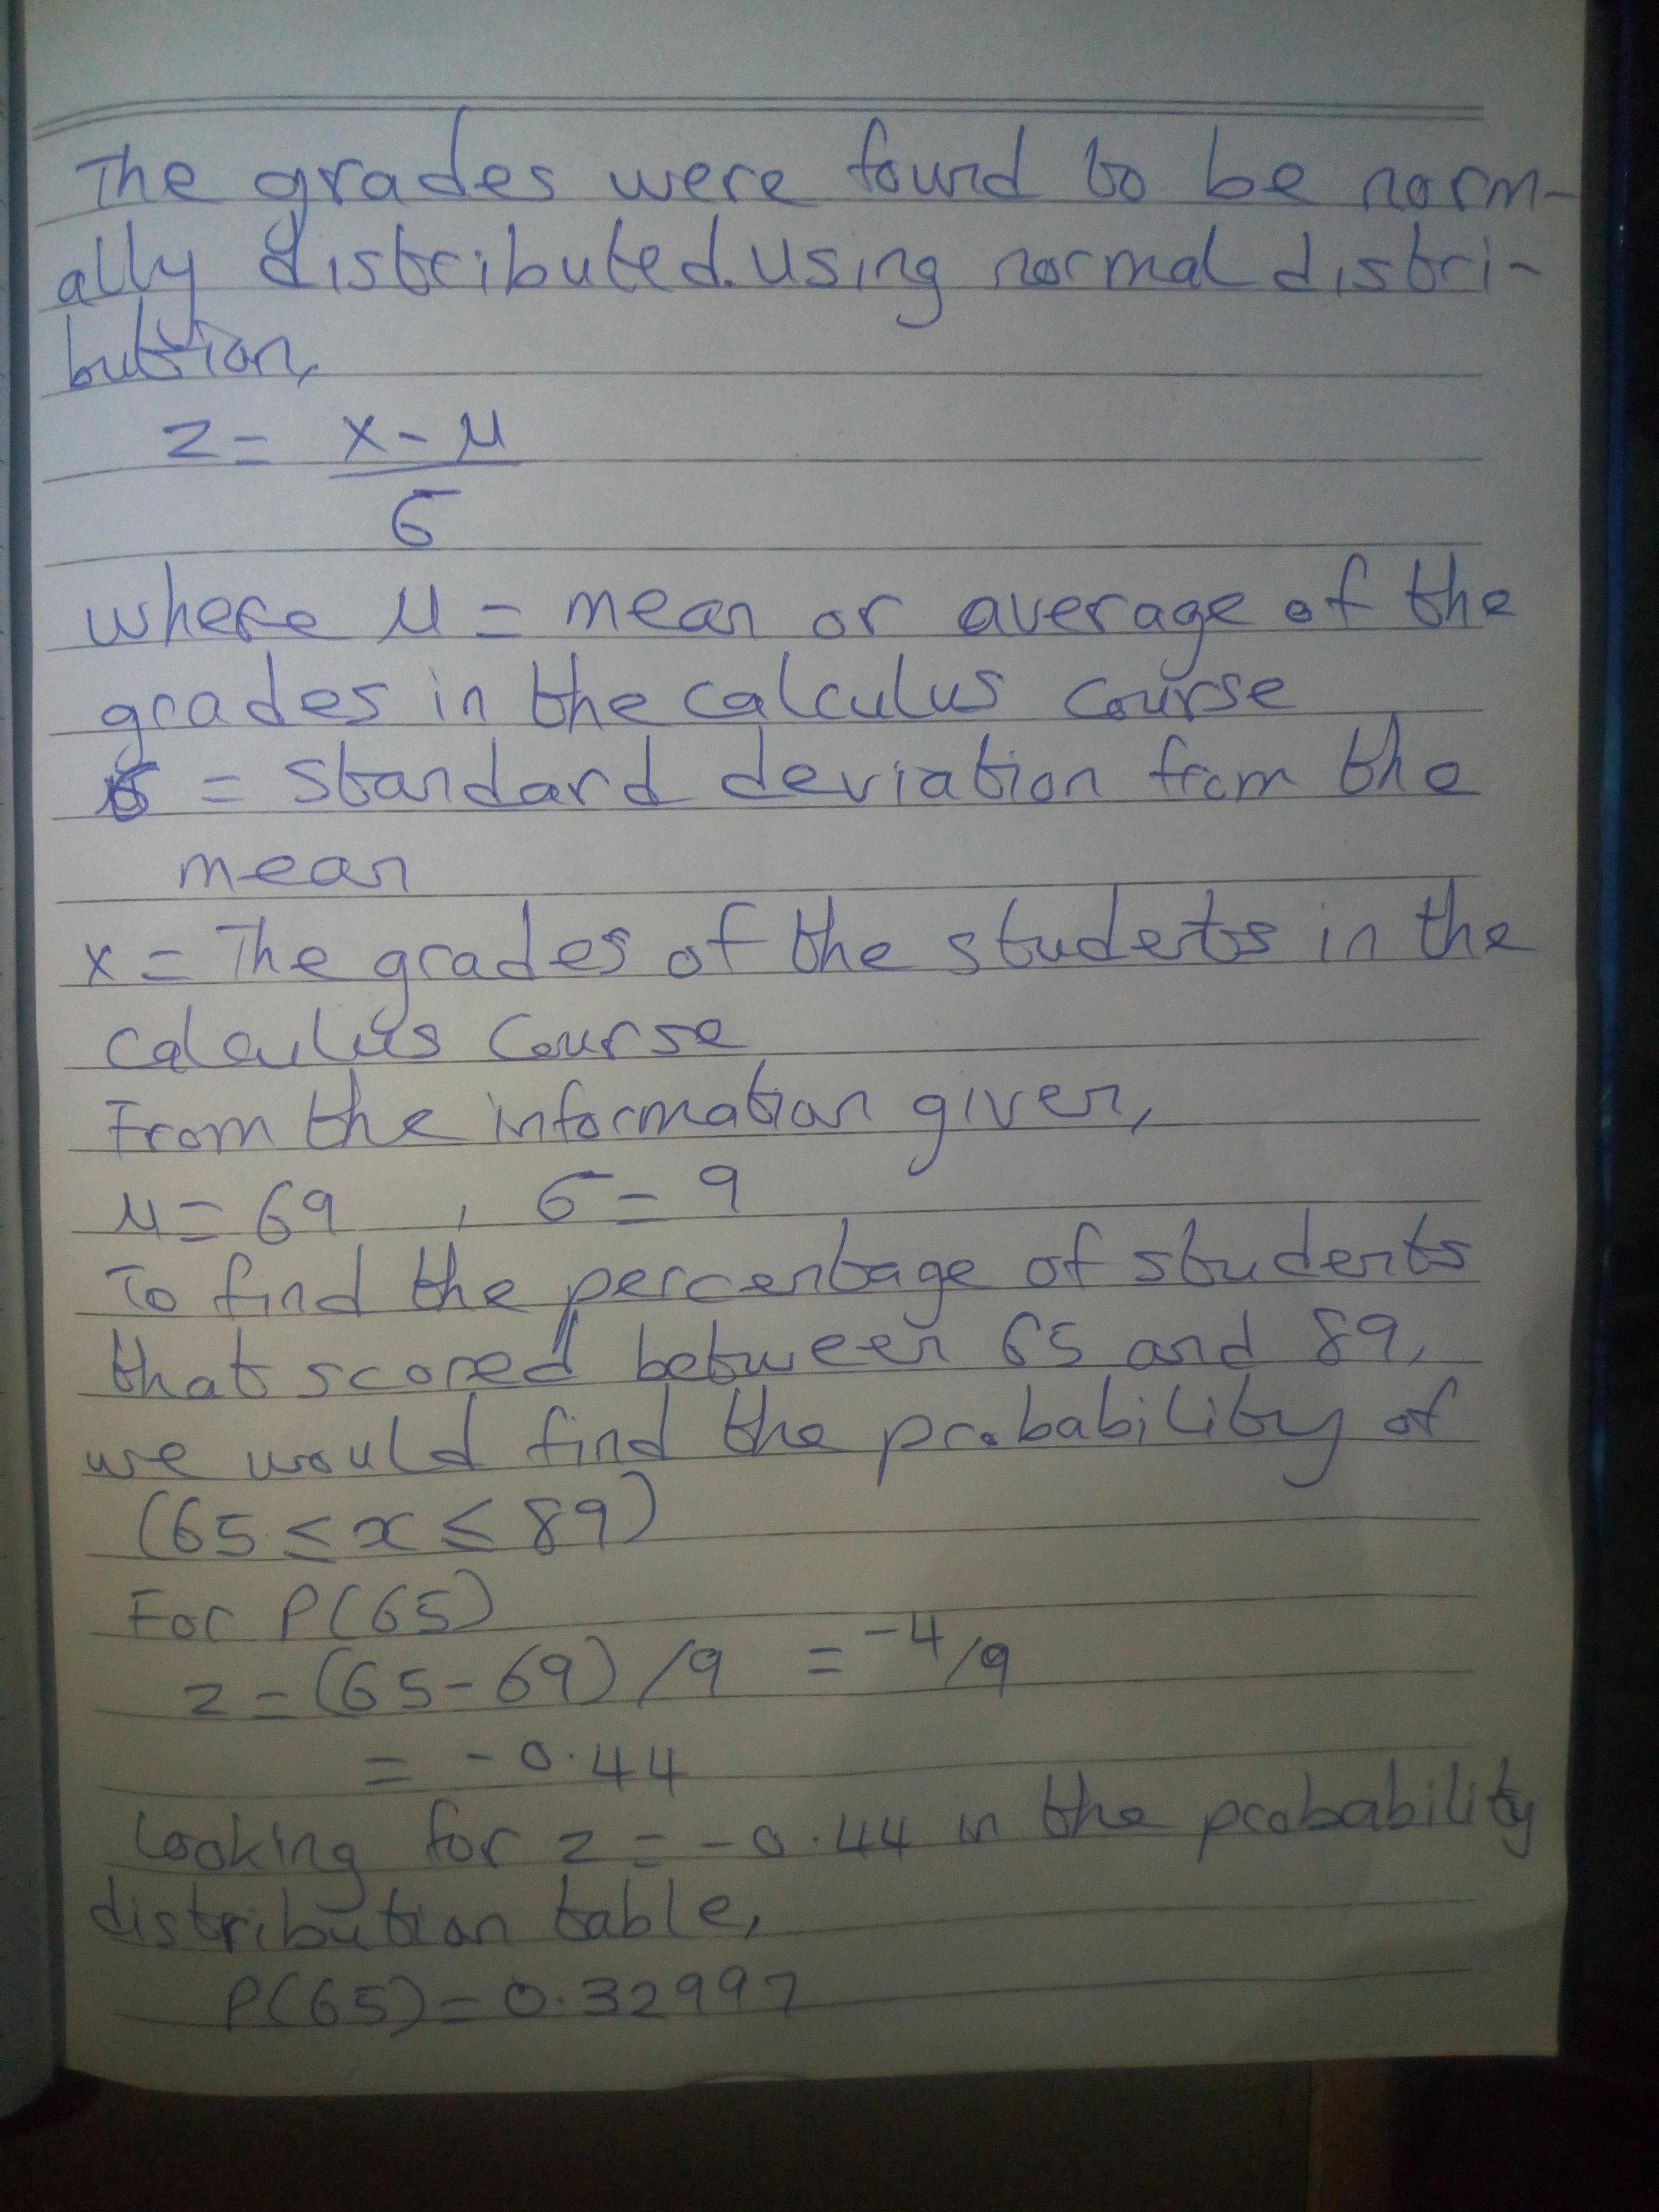 The grades were found to be norm-
ally distributed. Using normal distri-
bution,
z = x - μ
σ
where μ = mean or average of the
grades in the calculus course
σ = standard deviation from the
mean
x = The grades of the students in the
calculus course
From the information given,
μ = 69 , σ = 9
To find the percentage of students
that scored between 65 and 89,
we would find the probability of
(65 ≤ x ≤ 89)
For P(65)
z = (65-69)/9 = -4/9
= -0.44
Looking for z = -0.44 in the probability
distribution table,
P(65) = 0.32997